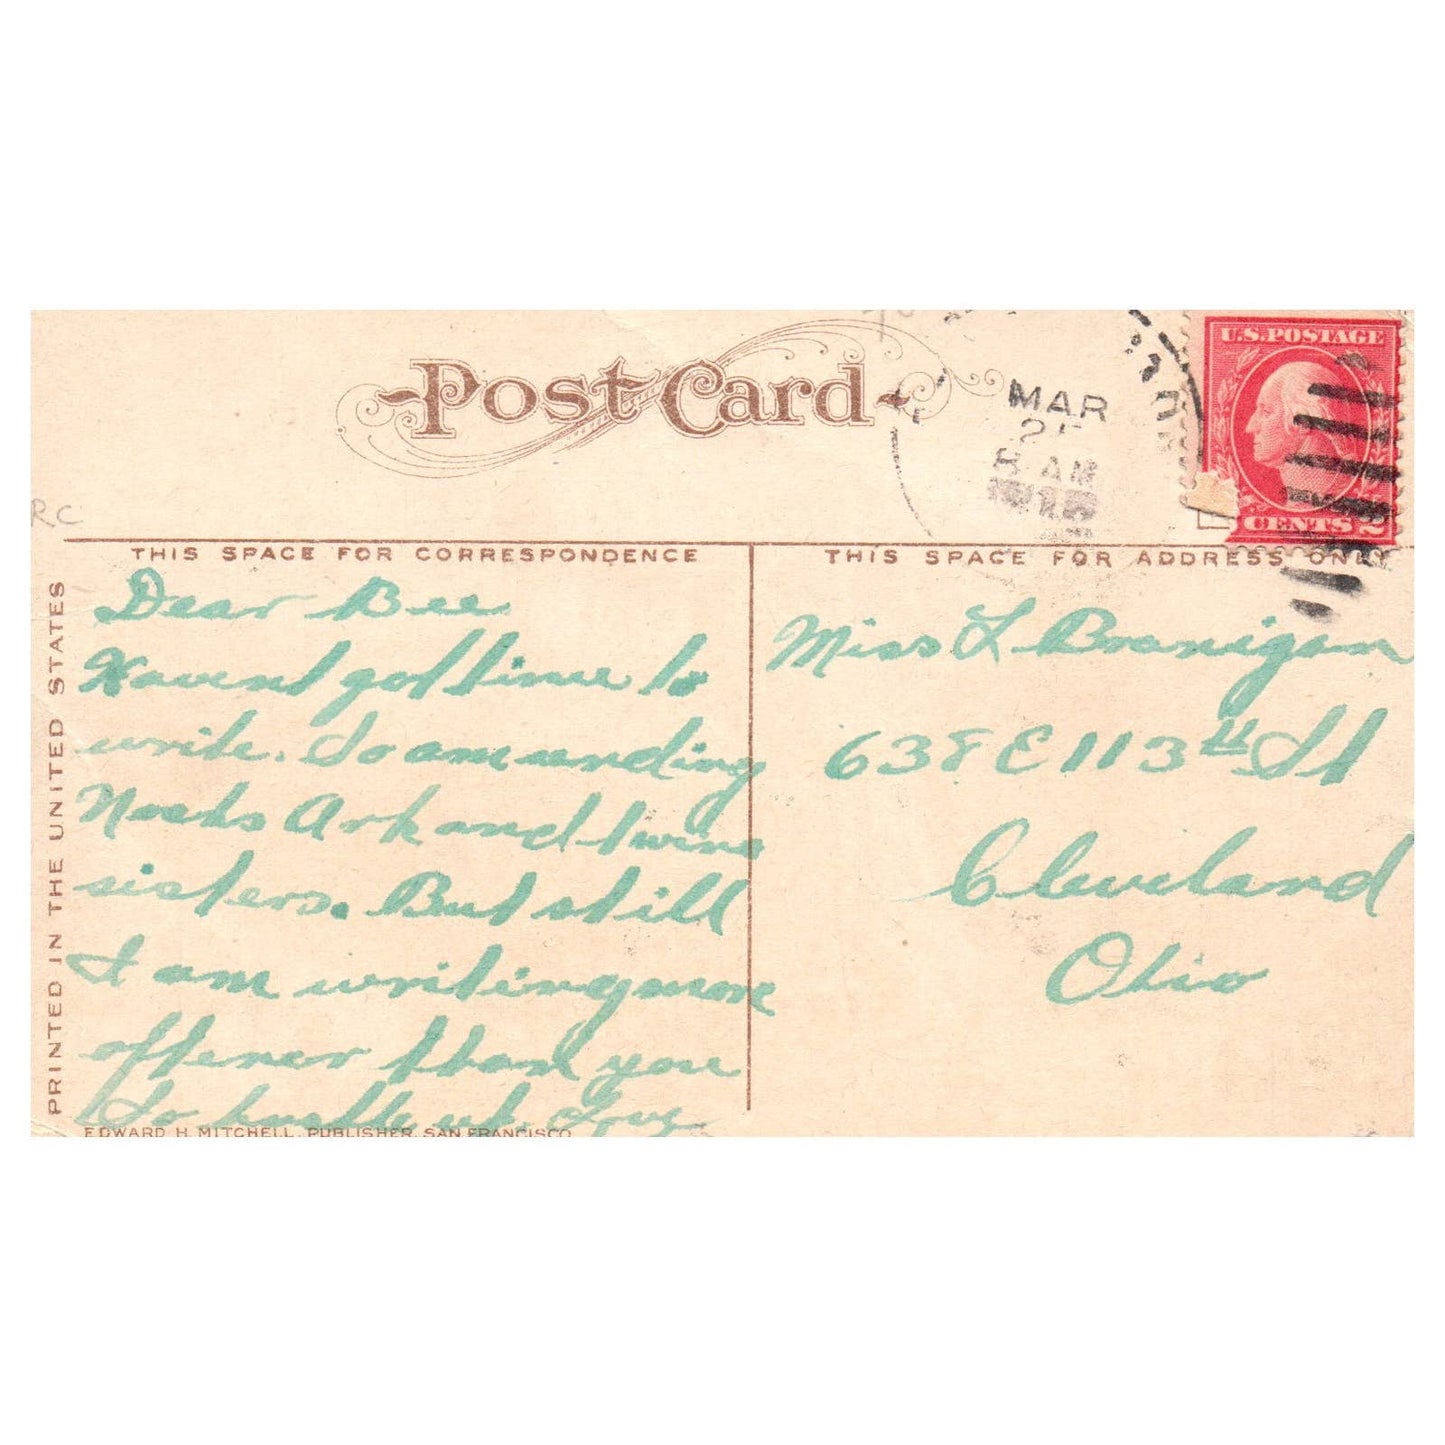 Post Card
MAR
8 AM
U.S.POSTAGE
CENTS 2
RC
THIS SPACE FOR CORRESPONDENCE
THIS SPACE FOR ADDRESS ONLY
PRINTED IN THE UNITED STATES
Dear Bee
Havent got time to
write. So am sending
Noahs Ark and twins
sisters. But still
I am writing more
offener than you
So hustle up. Love
EDWARD H. MITCHELL, PUBLISHER, SAN FRANCISCO
Miss L Branigan
638 E 113th St
Cleveland
Ohio